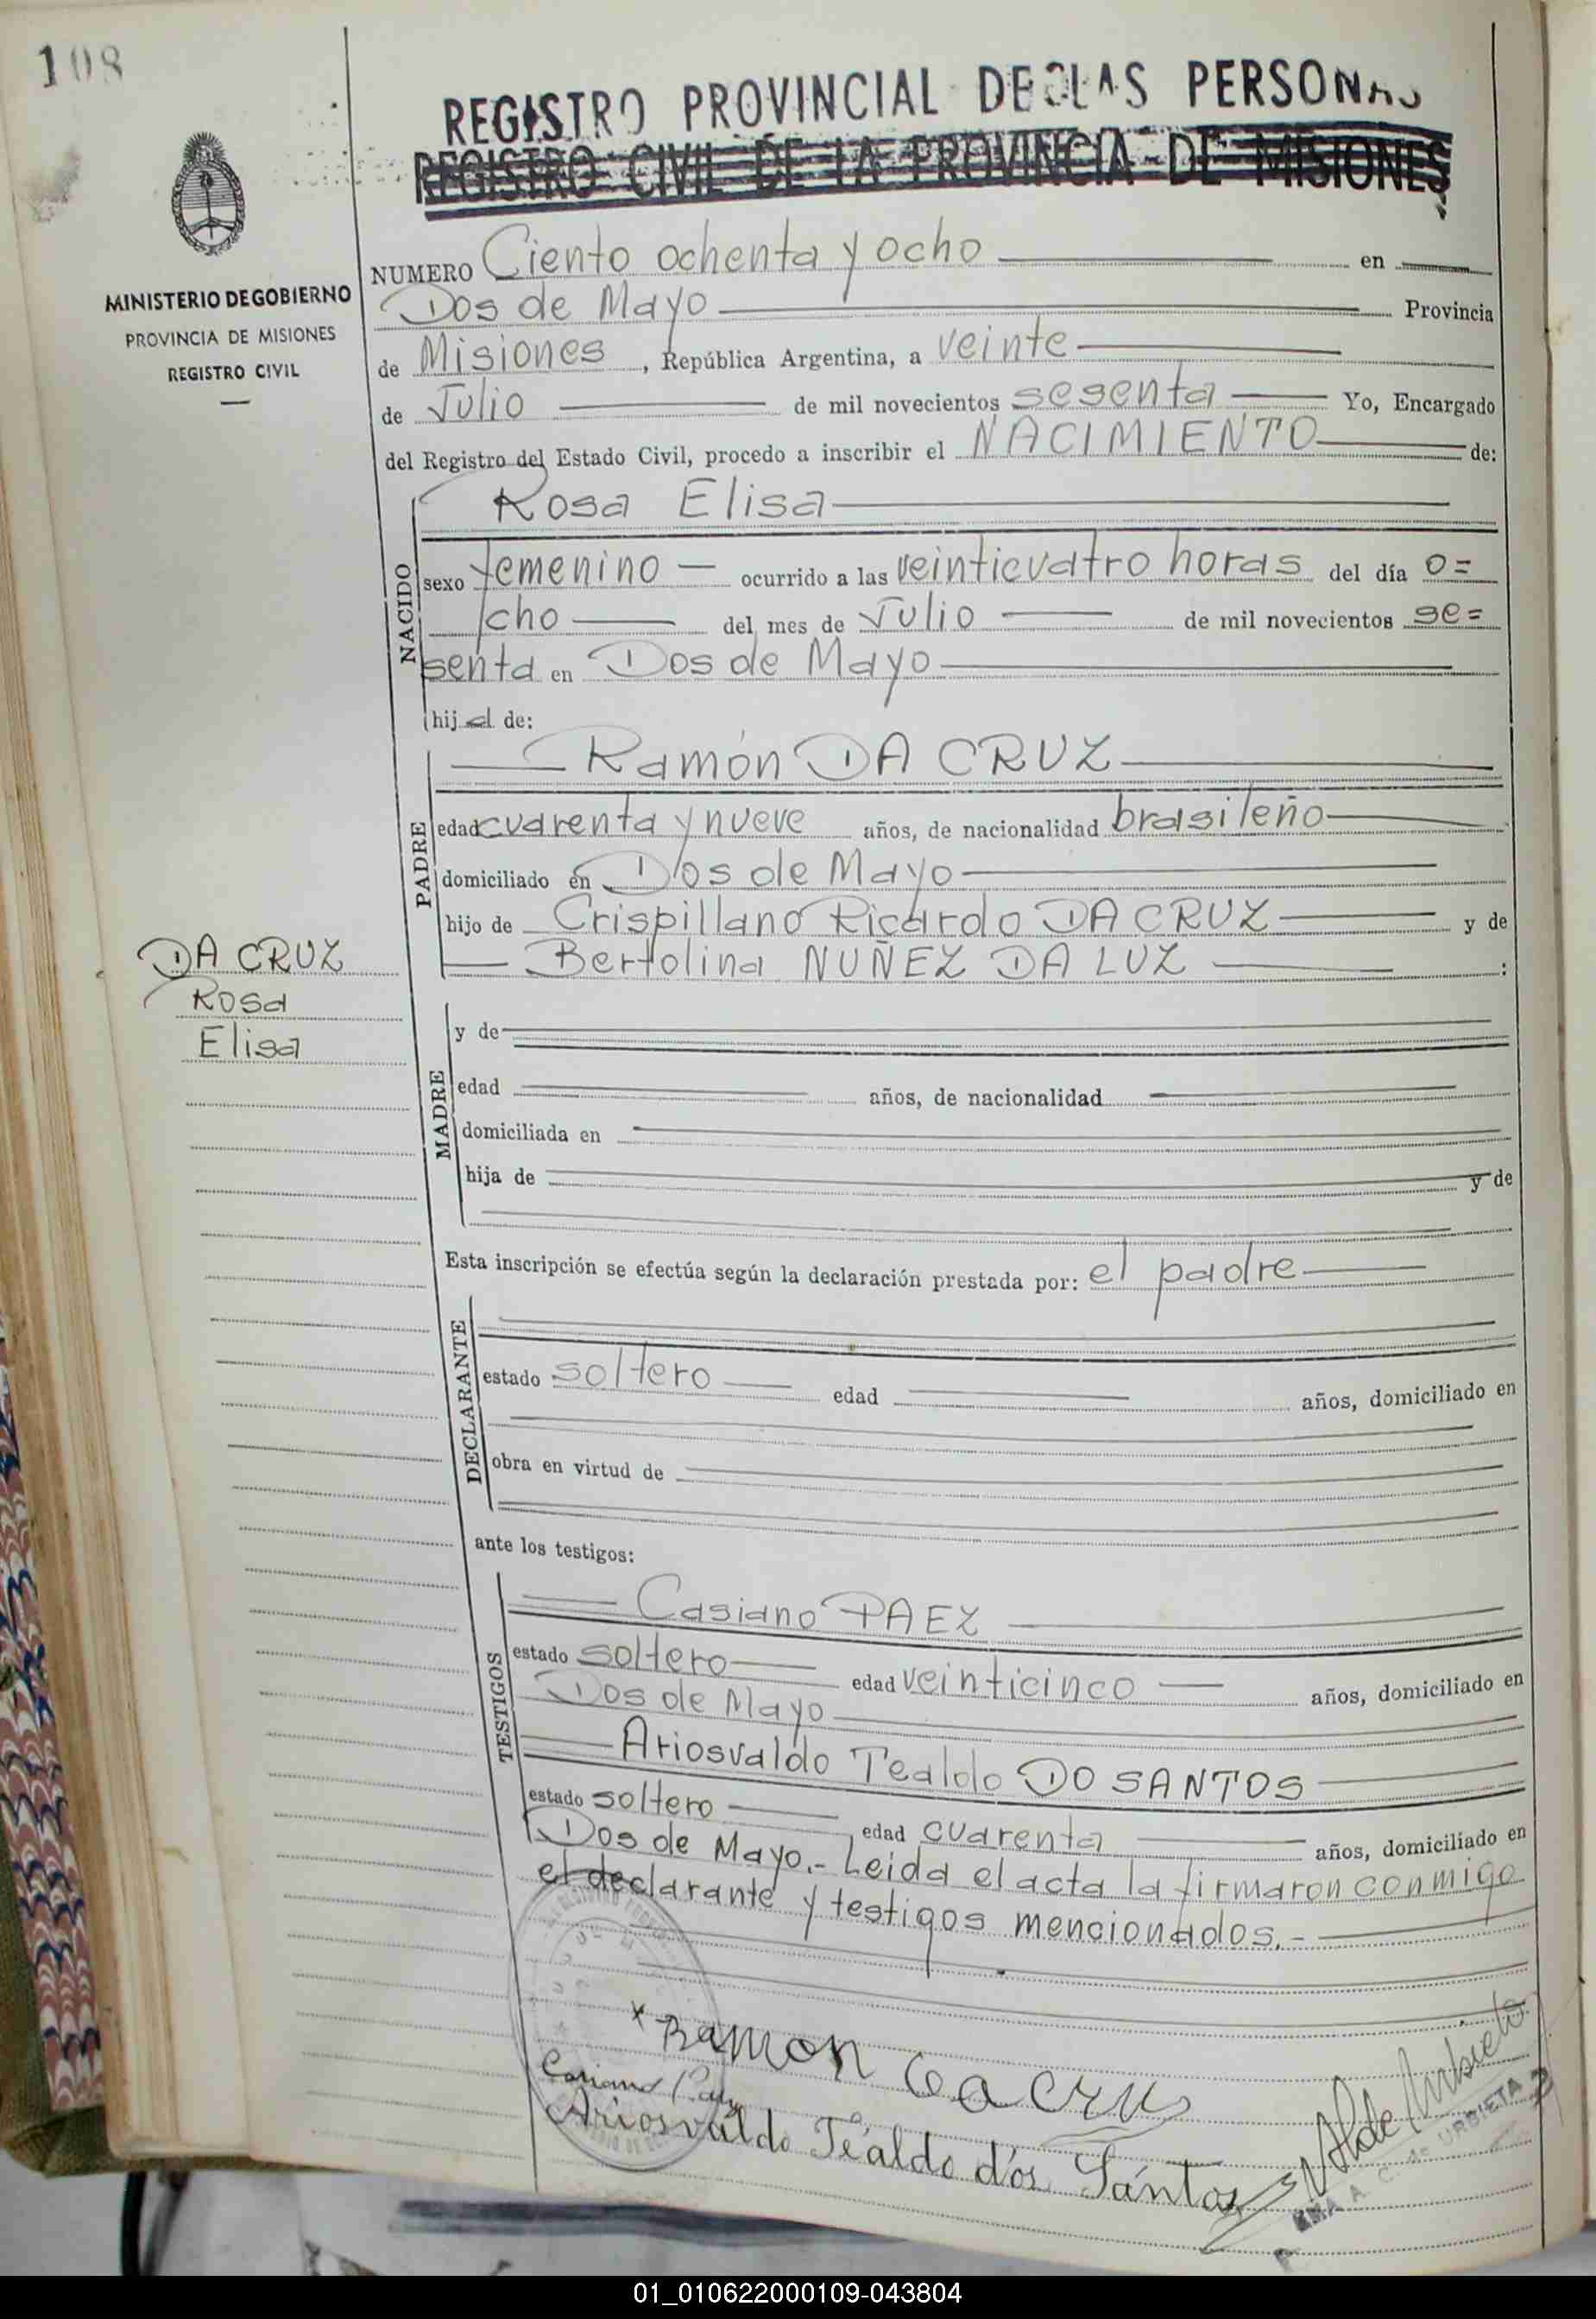 108
REGISTRO PROVINCIAL DE LAS PERSONAS
REGISTRO CIVIL DE LA PROVINCIA DE MISIONES
MINISTERIO DE GOBIERNO
PROVINCIA DE MISIONES
REGISTRO CIVIL
NUMERO Ciento ochenta y ocho en
Dos de Mayo Provincia
de Misiones, República Argentina, a veinte
de Julio de mil novecientos sesenta Yo, Encargado
del Registro del Estado Civil, procedo a inscribir el NACIMIENTO de:
NACIDO
Rosa Elisa
sexo femenino ocurrido a las veinticuatro horas del día o=
cho del mes de Julio de mil novecientos se=
senta en Dos de Mayo
hija de:
PADRE
Ramón DA CRUZ
edad cuarenta y nueve años, de nacionalidad brasileño
domiciliado en Dos de Mayo
hijo de Crispillano Ricardo DA CRUZ y de
Bertolina NUÑEZ DA LUZ :
DA CRUZ
Rosa
Elisa
MADRE
y de
edad años, de nacionalidad
domiciliada en
hija de y de
Esta inscripción se efectúa según la declaración prestada por: el padre
DECLARANTE
estado soltero edad años, domiciliado en
obra en virtud de
ante los testigos:
TESTIGOS
Casiano PAEZ
estado soltero edad veinticinco años, domiciliado en
Dos de Mayo
Ariosvaldo Tealdo DO SANTOS
estado soltero edad cuarenta años, domiciliado en
Dos de Mayo.- Leida el acta la firmaron conmigo
el declarante y testigos mencionados.-
x Ramon Da Cru
Casiano Paez
Ariosváldo Téaldo dos Sántos
A. C. de URBIETA
01_010622000109-043804